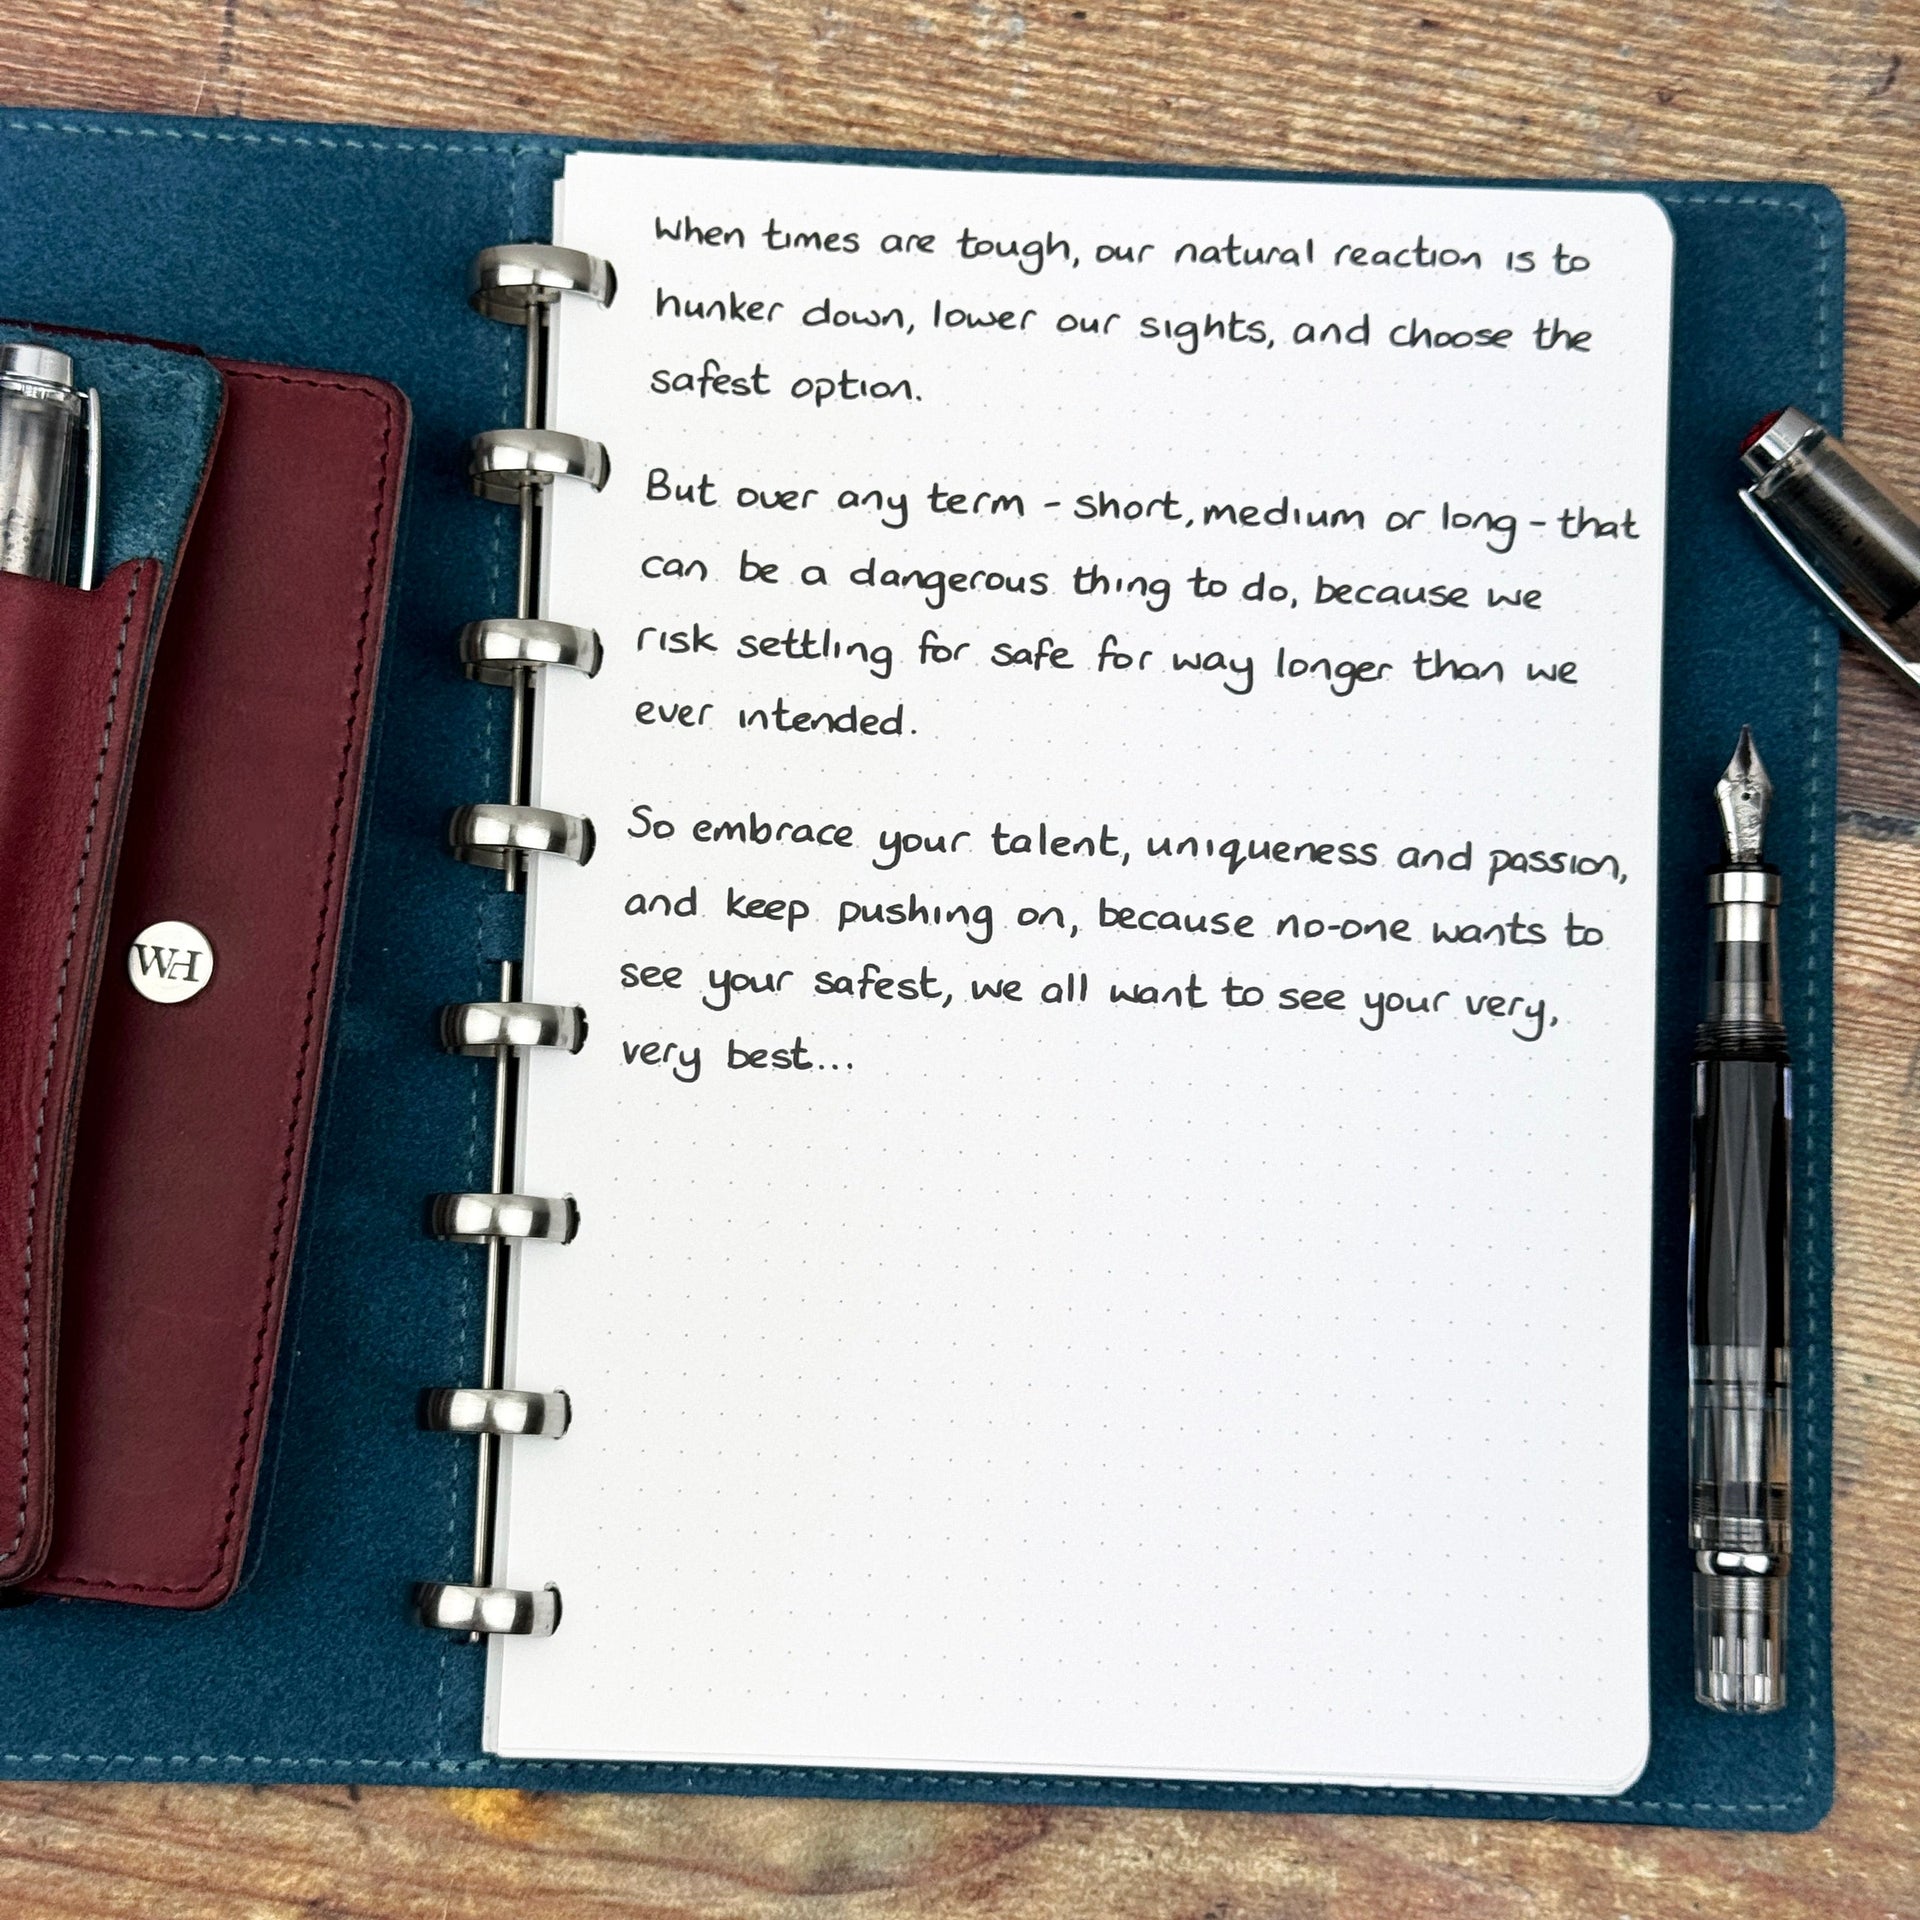 When times are tough, our natural reaction is to
hunker down, lower our sights, and choose the
safest option.
But over any term - short, medium or long - that
can be a dangerous thing to do, because we
risk settling for safe for way longer than we
ever intended.
So embrace your talent, uniqueness and passion,
and keep pushing on, because no-one wants to
see your safest, we all want to see your very,
very best...
WH